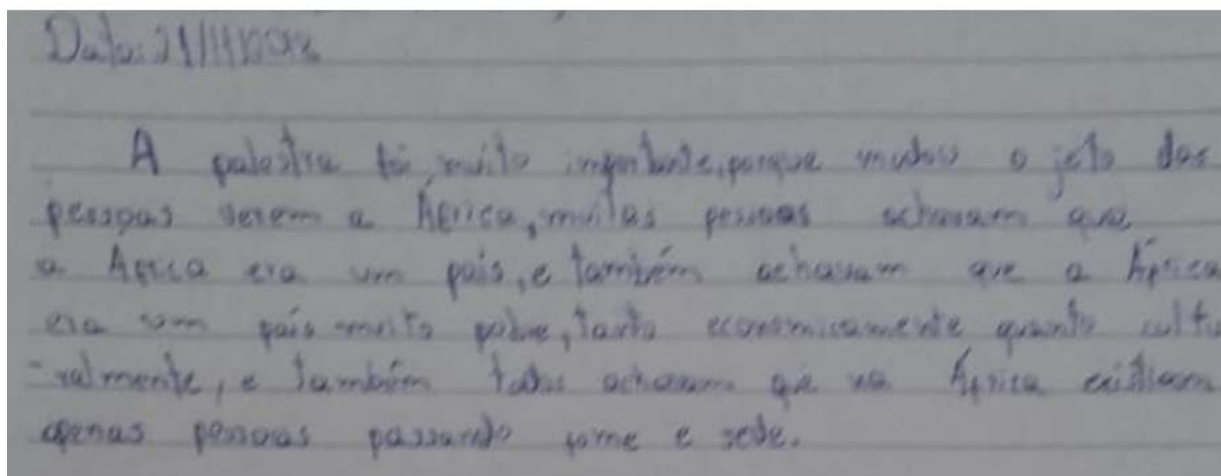 Data: 21/11/2012
A palestra foi muito importante, porque mudou o jeto das
pessoas verem a África, muitas pessoas achavam que
a África era um país, e também achavam que a África
era um país muito pobre, tanto economicamente quanto cultu
-ralmente, e também todos achavam que na África existiam
apenas pessoas passando fome e sede.